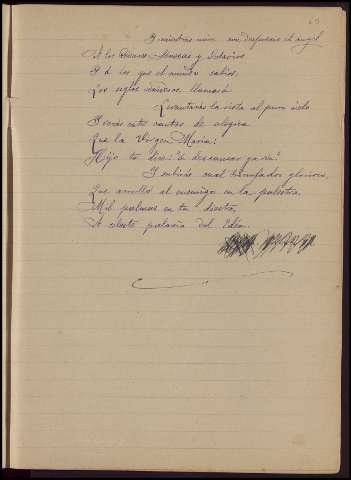 Y mientras mire con desprecio el ángel
A los Césares, Sénecas y Octavios
Y á los que el mundo sabios
Los siglos venideros llamará
Levantarás la vista al puro cielo
Y verás entre cantos de alegría
Que la Virgen María
Hijo te dice: á descansar ya vén!
Y subirás cual triunfador glorioso,
Que arrolló al enemigo en la palestra,
Mil palmas en tu diestra,
Al celeste palacio del Edén.